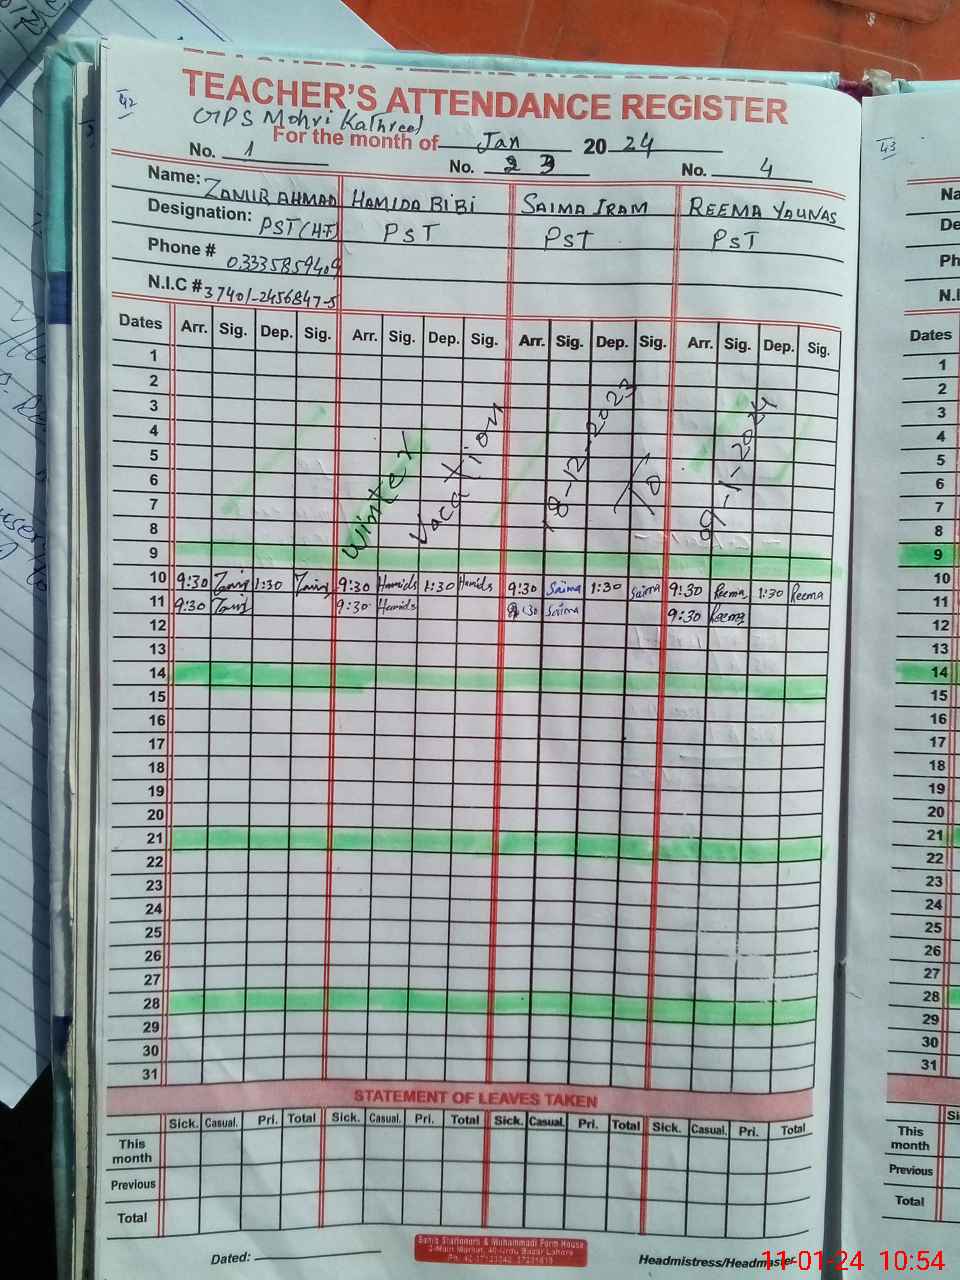 TEACHER'S ATTENDANCE REGISTER
42
GPS Mohri Kathreel
For the month of Jan 20 24
No. 1 No. 2 3 No. 4
Name: ZAMIR AHMAD HAMIDA BIBI SAIMA IRAM REEMA YAUNAS
Designation: PST (H.T) PST PST PST
Phone # 03335859409
N.I.C # 37401-2456847-5
Dates Arr. Sig. Dep. Sig. Arr. Sig. Dep. Sig. Arr. Sig. Dep. Sig. Arr. Sig. Dep. Sig.
1
2
3
4
5
6
7
8
Winter Vacation 18-12-2023 To 09-1-2024
9
10 9:30 Zamir 1:30 Zamir 9:30 Hamida 1:30 Hamida 9:30 Saima 1:30 Saima 9:30 Reema 1:30 Reema
11 9:30 Zamir 9:30 Hamida 9:30 Saima 9:30 Reema
12
13
14
15
16
17
18
19
20
21
22
23
24
25
26
27
28
29
30
31
STATEMENT OF LEAVES TAKEN
Sick. Casual. Pri. Total Sick. Casual. Pri. Total Sick. Casual. Pri. Total Sick. Casual. Pri. Total
This month
Previous
Total
Dated:
Headmistress/Headmaster
43
Na
De
Ph
N.I
Dates
1
2
3
4
5
6
7
8
9
10
11
12
13
14
15
16
17
18
19
20
21
22
23
24
25
26
27
28
29
30
31
Si
This month
Previous
Total
11-01-24 10:54